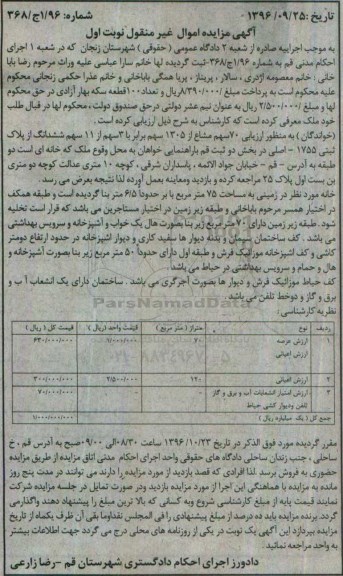 تاریخ :۱۳۹۶/۰۹/۲۵ شماره: ۳۶۸/ج۱/۹۶
آگهی مزایده اموال غیر منقول نوبت اول
به موجب اجراییه صادره از شعبه ۲ دادگاه عمومی ( حقوقی ) شهرستان زنجان که در شعبه ۱ اجرای
احکام مدنی قم به شماره ۳۶۸/ج۱/۹۶-ثبت گردیده لها خانم سارا عباسی علیه وراث مرحوم رضا بابا
خانی : خانم معصومه آژدری ، سالار ، پریناز ، پریا همگی باباخانی و خانم عذرا حکمی زنجانی محکوم
علیه محکوم است به پرداخت مبلغ ۸/۳۹۰/۰۰۰ ریال و تعداد ۱۰۰قطعه سکه بهار آزادی در حق محکوم
لها و مبلغ ۲/۵۰۰/۰۰۰ ریال به عنوان نیم عشر دولتی درحق صندوق دولت ، محکوم لها در قبال طلب
خود ملک معرفی کرده است که کارشناس به شرح ذیل ارزیابی کرده است .
(خواندگان ) به منظور ارزیابی ۷۰سهم مشاع از ۱۳۰۵ سهم برابر با ۳سهم از ۱۱ سهم ششدانگ از پلاک
ثبتی ۱۷۵۵ – اصلی در بخش دو ثبت قم باراهنمایی خواهان به محل وقوع ملک که خانه ای است دو
طبقه به آدرس – قم – خیابان جواد الائمه ، پاسداران شرقی ، کوچه ۱۰ متری عدالت کوچه دو متری
بن بست اول پلاک ۲۵ مراجعه کرده و بازدید ومعاینه بعمل آورده لذا نتیجه بعرض می رسد .
خانه مورد نظر در زمینی به مساحت ۷۵ متر مربع با بر حدودا ۶/۵ متر بنا گردیده است و طبقه همکف
در اختیار همسر مرحوم باباخانی و طبقه زیر زمین در اختیار مستاجرین می باشد که قرار است تخلیه
شود . طبقه زیر زمین دارای ۷۰ متر مربع زیر بنا بصورت هال یک خواب و آشپزخانه و سرویس بهداشتی
می باشد . کف ساختمان سیمان و بدنه دیوار ها سفید کاری و دیوار اشپزخانه در حدود ارتفاع دومتر
کاشی و کف اشپزخانه موزائیک فرش و طبقه اول دارای حدوداً ۵۰ متر مربع زیر بنا بصورت آشپزخانه و
هال و حمام و سرویس بهداشتی در حیاط می باشد .
کف حیاط موزائیک فرش و دیوار ها بصورت آجرگری می باشد . ساختمان دارای یک انشعاب آ ب و
برق و گاز و دوخط تلفن می باشد
نظریه کارشناسی :
ردیف نوع متراژ ( متر مربع ) قیمت واحد (ریال ) قیمت کل ( ریال )
۱ ارزش عرصه ۷۰ ۶۳۰/۰۰۰/۰۰۰
ارزش اعیانی
۲ ارزش اعیانی ۱۲۰ ۲/۵۰۰/۰۰۰ ۳۰۰/۰۰۰/۰۰۰
۳ ارزش امتیاز انشعابات آب و برق و گاز - ۷۰/۰۰۰/۰۰۰
تلفن ودیوار کشی حیاط
جمع کل ( یک میلیارد ریال ) ۱/۰۰۰/۰۰۰/۰۰۰
مقرر گردیده مورد فوق الذکر در تاریخ ۱۳۹۶/۱۰/۲۳ ساعت ۰۸/۳۰الی ۰۹/۰۰صبح به آدرس قم ، خ
ساحلی ، جنب زندان ساحلی دادگاه های حقوقی واحد اجرای احکام مدنی اتاق مزایده از طریق مزایده
حضوری به فروش برسد .لذا افرادی که قصد بازدید از مورد مزایده را دارند می توانند در مدت پنج روز
مانده به مزایده با هماهنگی این اجرا از مورد مزایده بازدید ودر صورت تمایل در جلسه مزایده شرکت
نمایند قیمت پایه از مبلغ کارشناسی شروع وبه کسانی که بالا ترین مبلغ را پیشنهاد دهند واگذارمی
گردد. برنده مزایده باید ده درصد از مبلغ پیشنهادی را فی المجلس نقداوما بقی آن ظرف یکماه از تاریخ
مزایده بپردازد این آگهی یک نوبت در یکی از روزنامه های محلی درج می گردد جهت اطلاعات بیشتر
به واحد مراجعه نمائید.
دادورز اجرای احکام دادگستری شهرستان قم –رضا زارعی